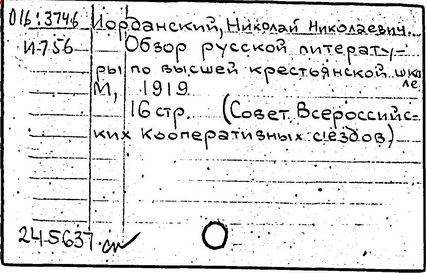 016:374.6 Иорданский, Николай Николаевич.
И-756 Обзор русской литерату-
ры по высшей крестьянской шко
ле
М, 1919
16 стр. (Совет Всероссийс-
ких кооперативных съездов)
24-5637